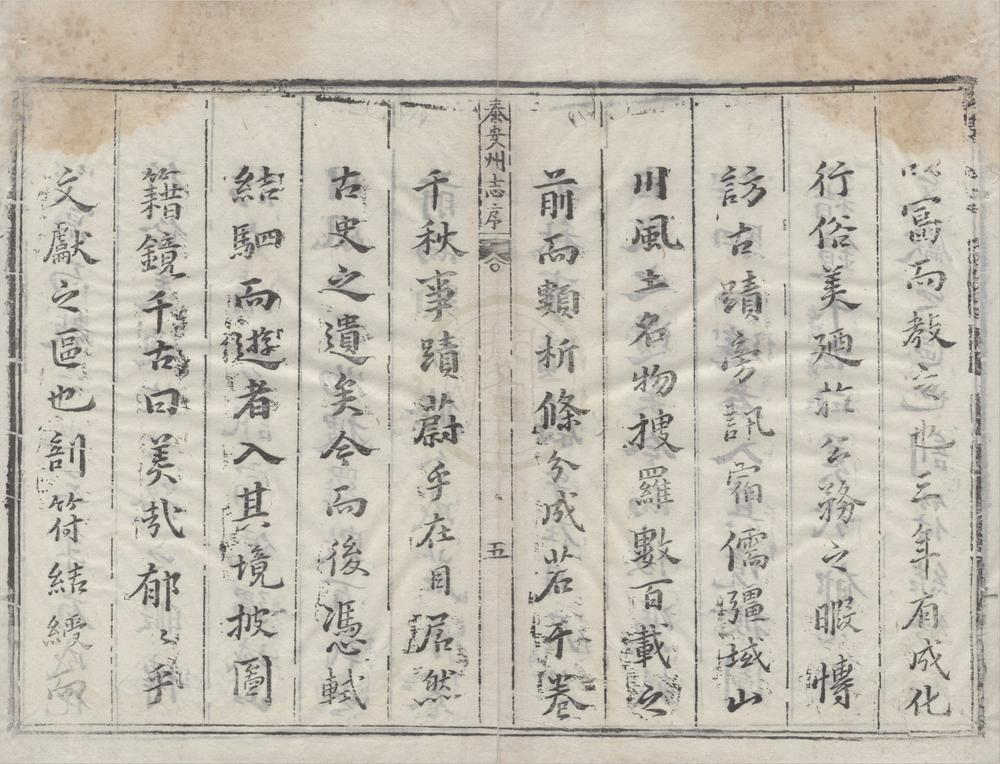 以富而教之也三年有成化
行俗美廼於公務之暇慱
訪古蹟旁訊宿儒疆域山
川風土名物搜羅數百載之
前而類析條分成若干卷
泰安州志序
五
千秋事蹟蔚乎在目居然
古史之遺矣今而後憑軾
結駟而遊者入其境披圖
籍鏡千古曰美哉郁〻乎
文獻之區也剖符結綬而